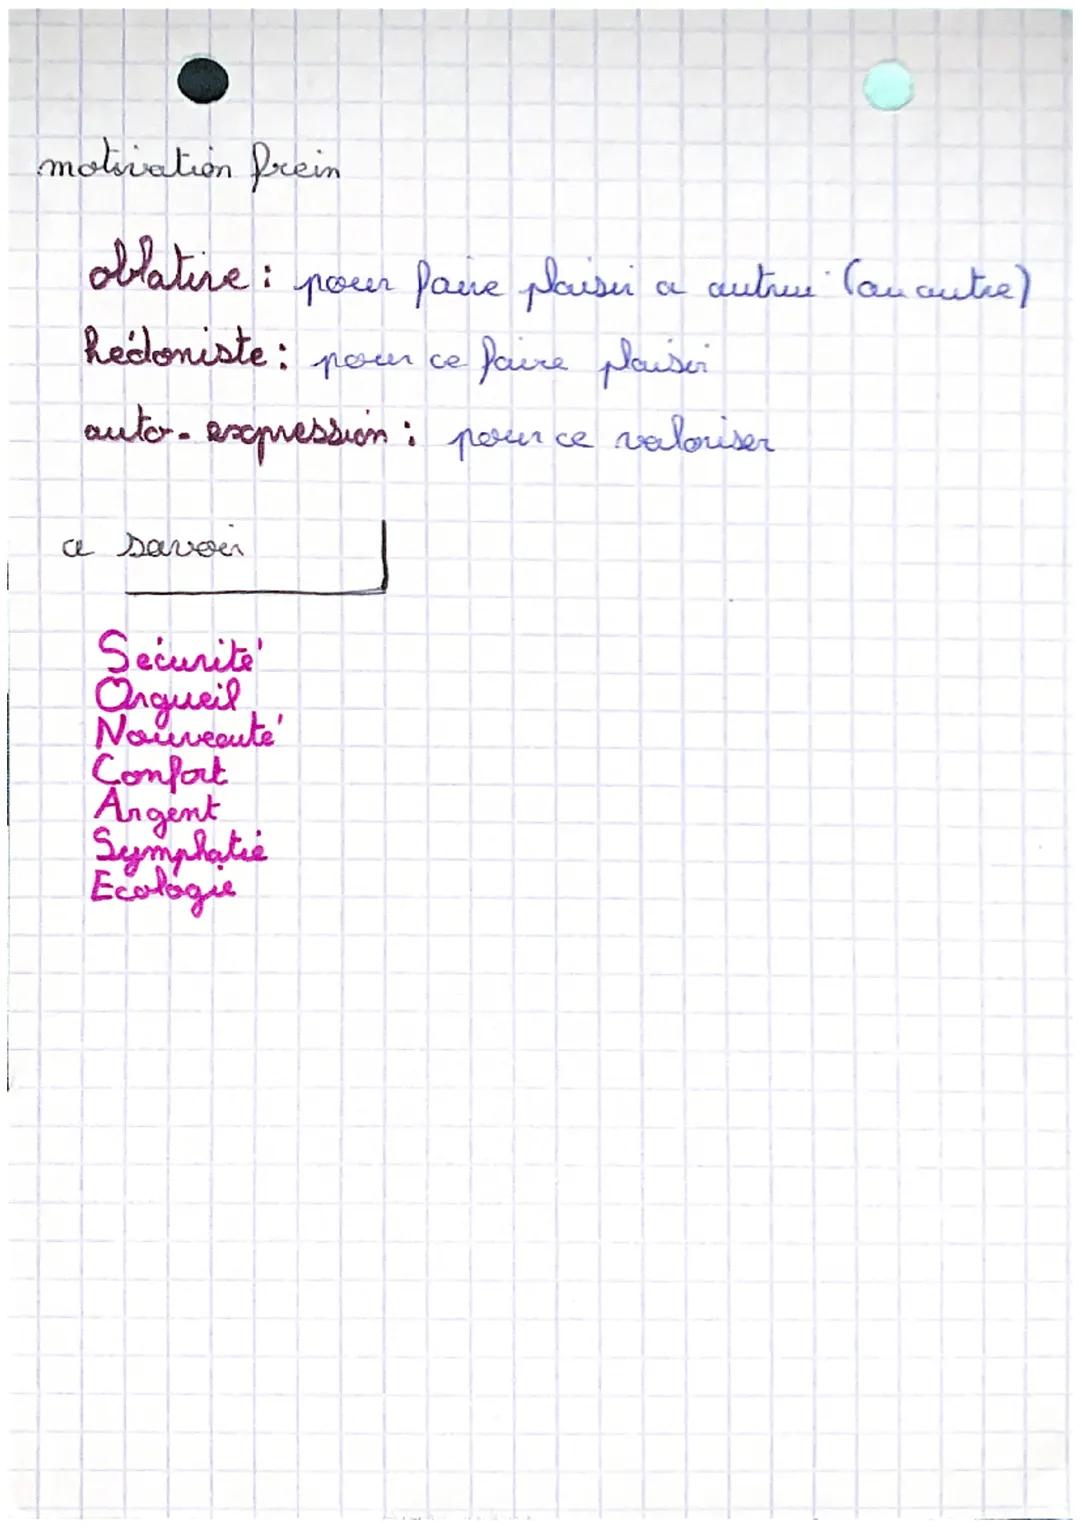 motivation frein
oblative : pour faire plaisir a autrui (au autre)
hédoniste : pour ce faire plaisir
auto-expression : pour ce valoriser
a savoir
Sécurité
Orgueil
Nouveauté
Confort
Argent
Symphatie
Ecologie